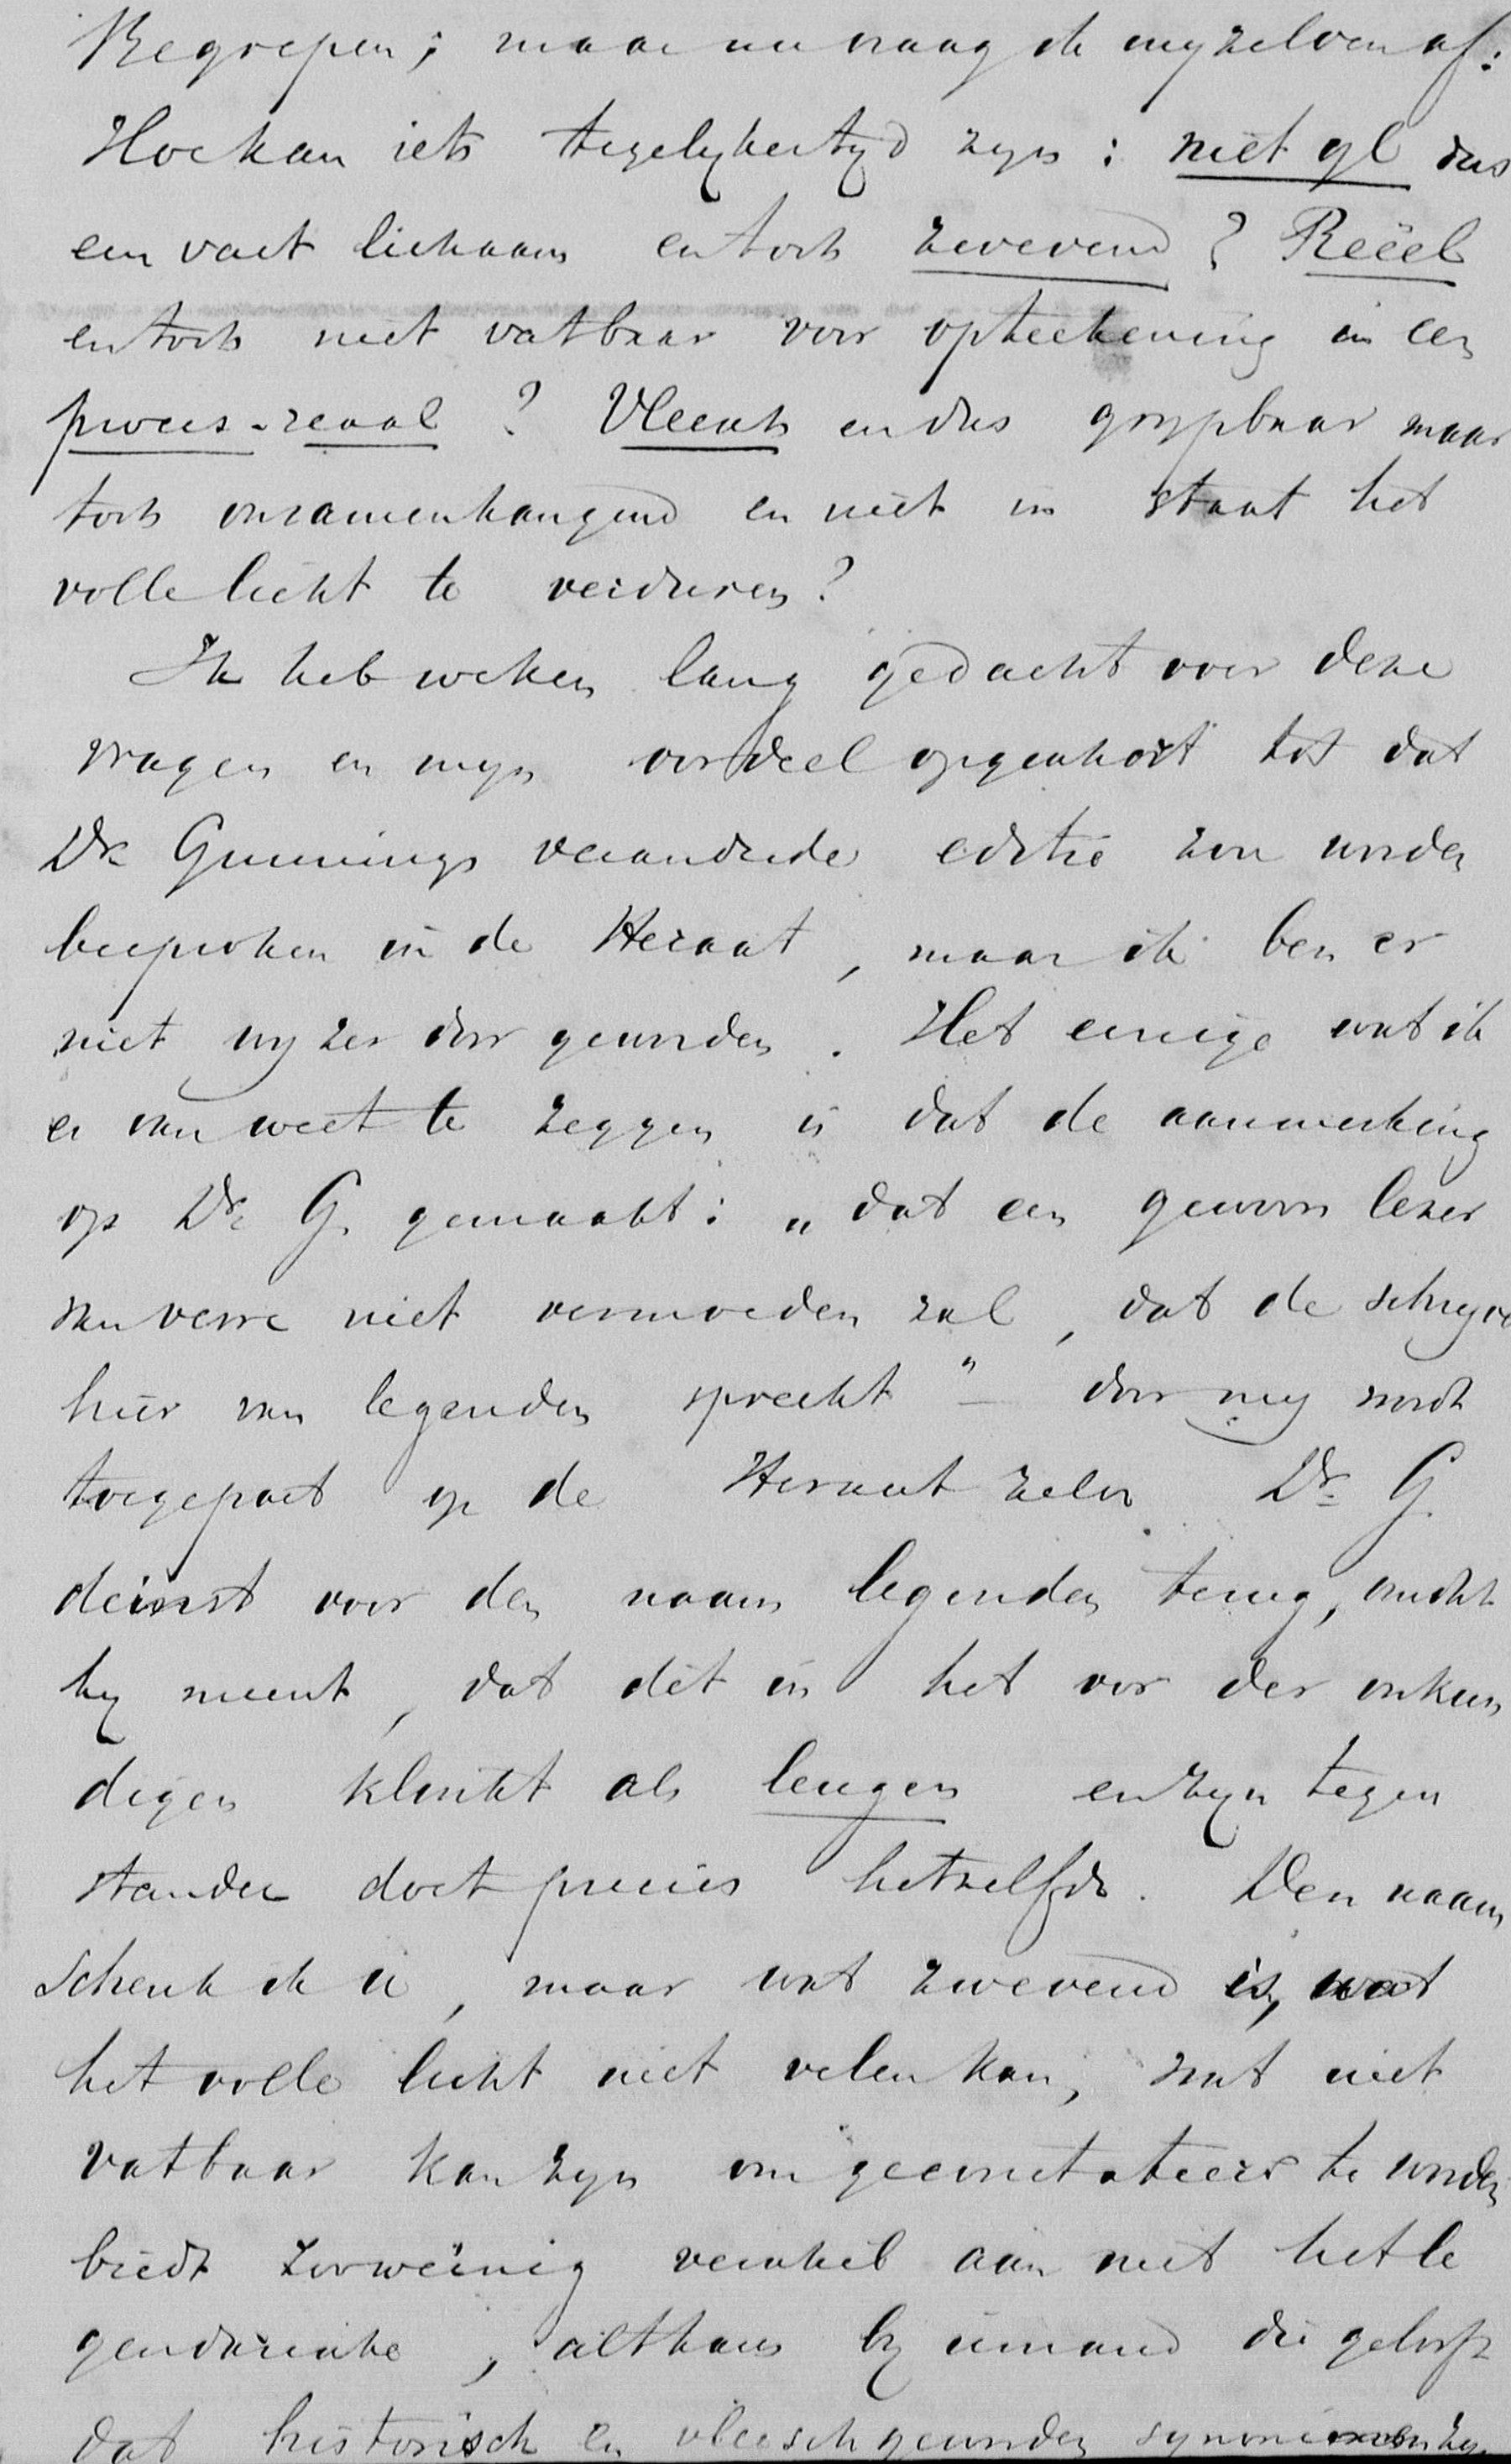 Begrepen; maar nu vraag ik mijzelven af:
Hoe kan iets tegelijkertijd zijn: niet ijl dus
een vast lichaam en toch zwevend? Reëel
en toch niet vatbaar voor opteekening in een
proces-verbaal? Vleesch en dus grijpbaar maar
toch onsamenhangend en niet in staat het
volle licht te verduren?
Ik heb weken lang gedacht over deze
vragen en mijn oordeel opgeschort tot dat
Dr Gunnings veranderde editie zou worden
besproken in de Heraut, maar ik ben er
niet wijzer door geworden. Het eenige wat ik
er van weet te zeggen is dat de aanmerking
op Dr G. gemaakt: „dat een gewoon lezer
van verre niet vermoeden zal, dat de schrijver
hier van legenden spreekt" – door mij wordt
toegepast op de Heraut zelve. Dr G.
deinst voor den naam legenden terug, omdat
hij meent, dat dit in het oor der onkun
digen klinkt als leugen en zijn tegen
stander doet precies hetzelfde. Den naam
schenk ik u, maar wat zwevend is, wat
het volle licht niet velen kan, wat niet
vatbaar kan zijn om geconstateerd te worden
biedt zoo weinig verschil aan met het le
gendarische, althans bij iemand die gelooft
dat historisch en vleesch geworden synoniemen zijn